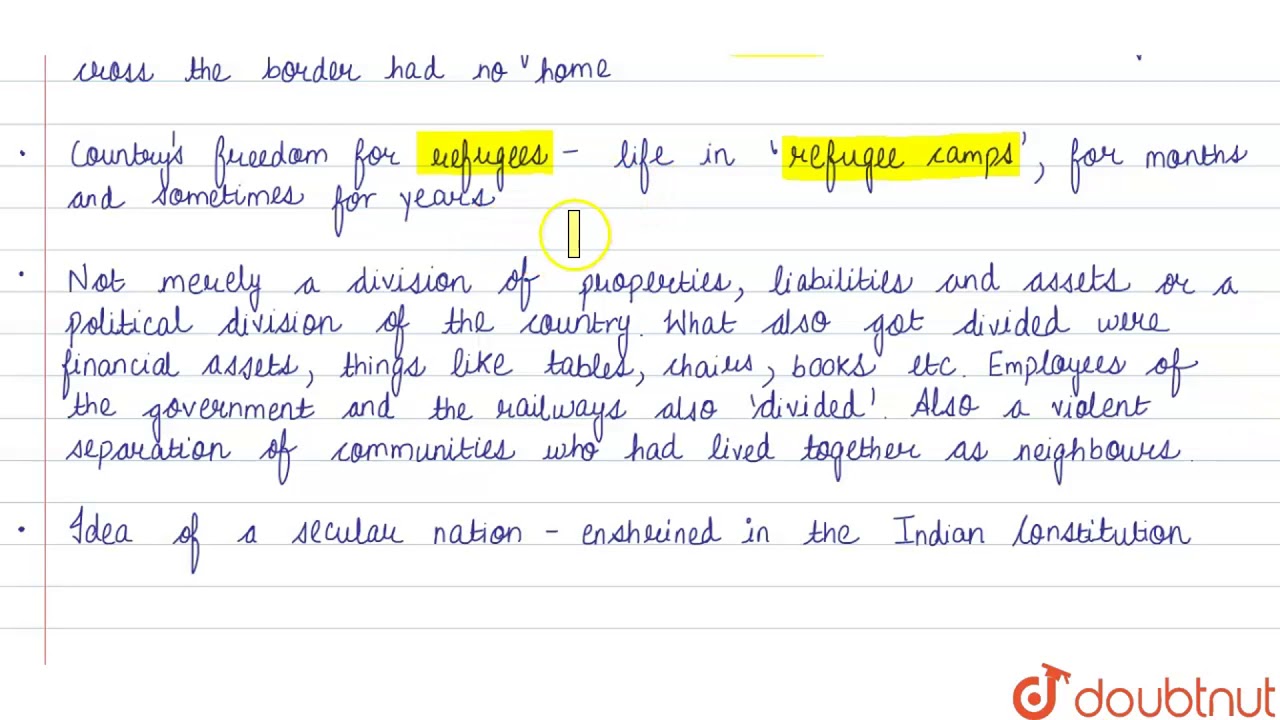 cross the border had no home
• Country's freedom for refugees – life in 'refugee camps', for months
and sometimes for years
• Not merely a division of properties, liabilities and assets or a
political division of the country. What also got divided were
financial assets, things like tables, chairs, books etc. Employees of
the government and the railways also 'divided'. Also a violent
separation of communities who had lived together as neighbours.
• Idea of a secular nation – enshrined in the Indian Constitution
doubtnut